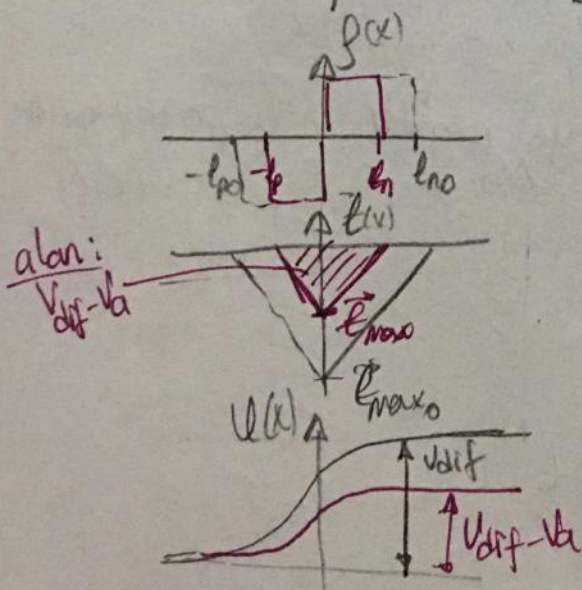 ρ(x)
-lp0 -lp ln ln0
E(x)
alanı
Vdif-Va
Emax
Emax0
φ(x)
Vdif
Vdif-Va